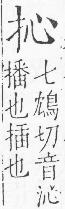 抋
七鴆切音沁
播也插也